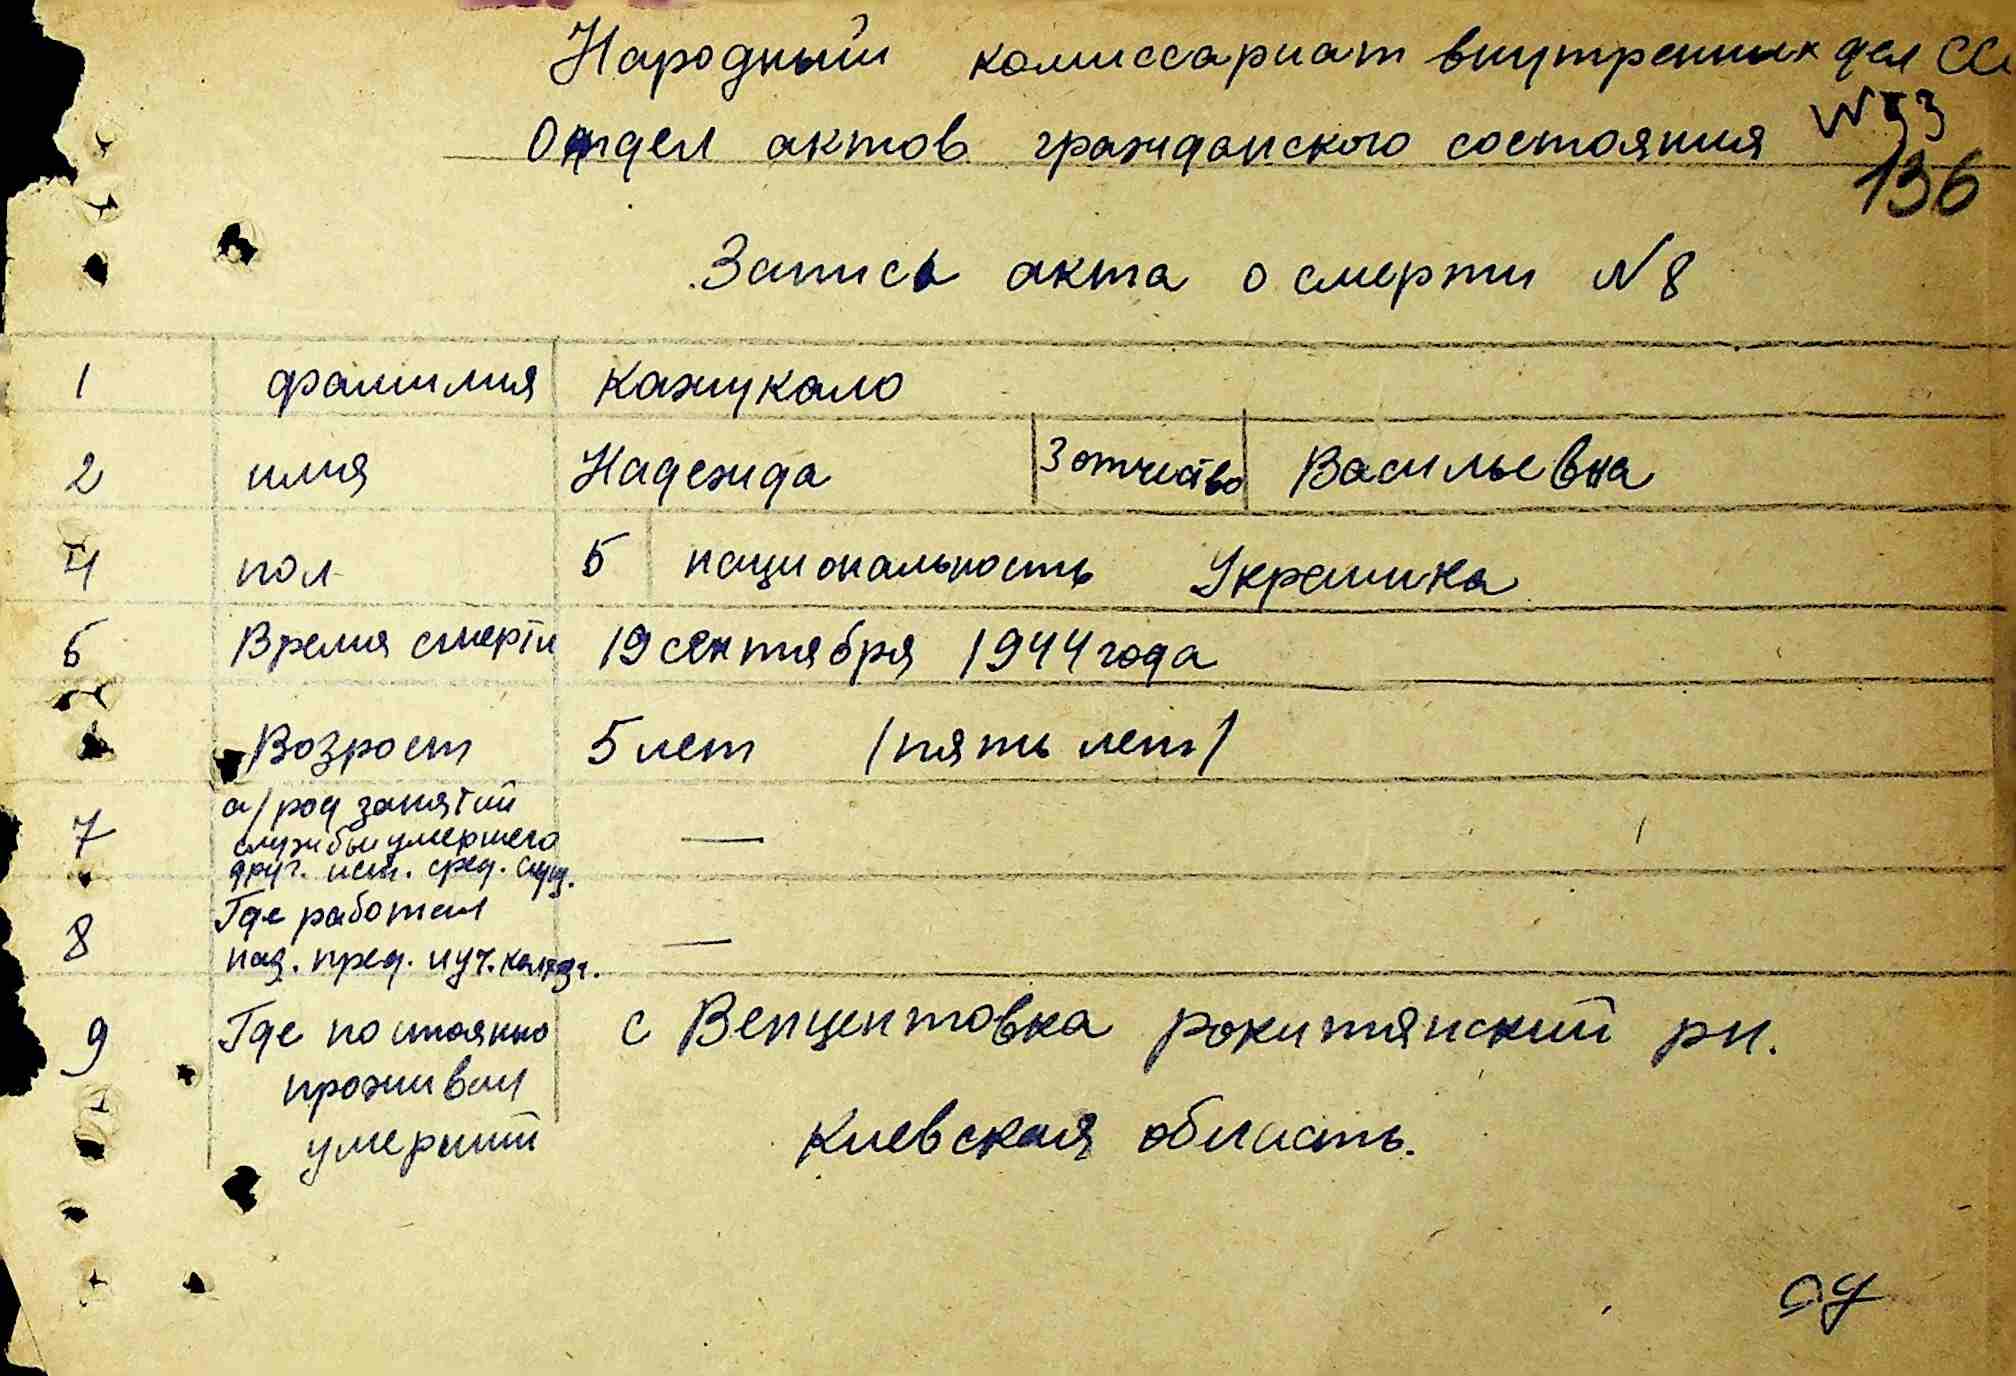 Народный комиссариат внутренних дел СС
Отдел актов гражданского состояния №
136
Запись акта о смерти №8
1 фамилия Кажукало
2 имя Надежда 3 отчество Васильевна
4 пол 5 национальность Украинка
6 Время смерти 19 сентября 1944 года
Возрост 5 лет /пять лет/
а/ род занятий
7 службы умершего —
друг. ист. сред. сущ.
Где работал
8 —
9 Где постоянно с Венцентовка рокитянский рн.
проживал
умерший Киевская область.